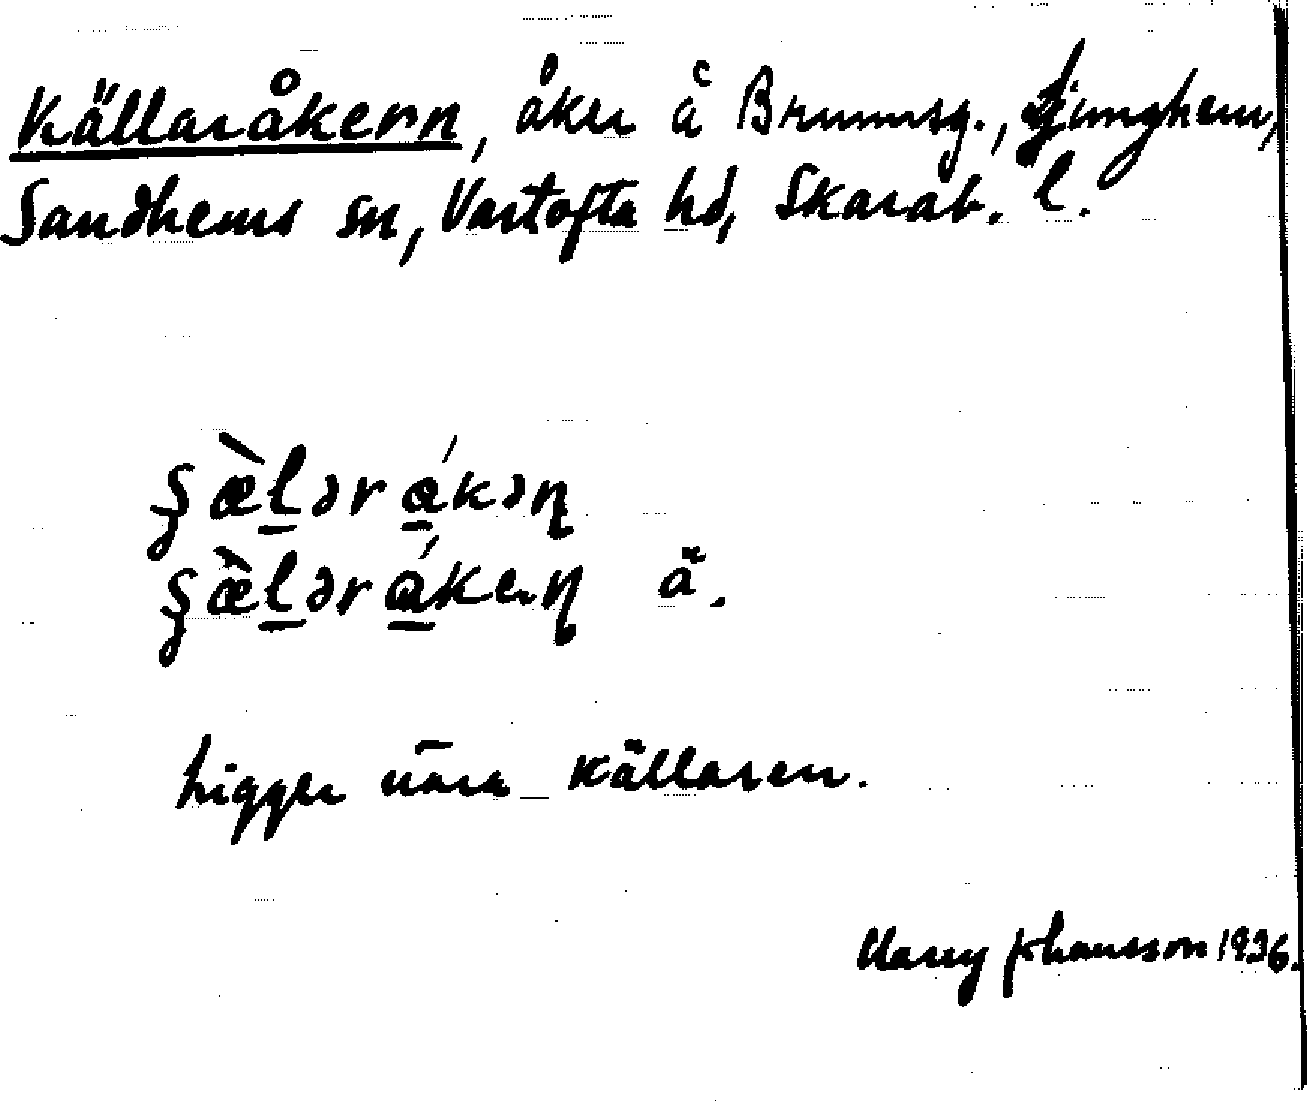 Källaråkern, åker å Brummsg., Ljunghem,
Sandhems sn, Vartofta hd, Skarab. l.
ʂæ̀lərákəɳ
ʂæ̀lərákeɳ ä.
Ligger nära källaren.
Harry Johansson 1936.